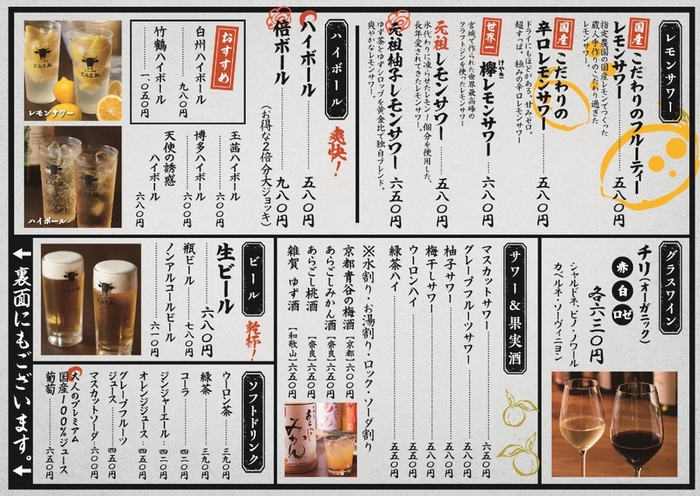 レモンサワー
国産
こだわりのフルーティー
レモンサワー 五八〇円
指定農園の国産レモンでつくった
蔵人手作りのこだわり過ぎた
レモンサワー。
国産
こだわりの
辛口レモンサワー 五八〇円
ドライにもほどがある、甘みゼロ。
超すっぱ、極みの辛口レモンサワー
世界一
欅レモンサワー 六八〇円
けやき
宮城で作られた世界最高峰の
クラフトジンを使ったレモンサワー
元祖レモンサワー 五八〇円
氷代わりに凍らせたレモン1個分を使用。
長年愛されてきたレモンサワー。
元祖柚子レモンサワー 六五〇円
ゆず茶とゆずシロップを黄金比で独自ブレンド。
爽やかなレモンサワー。
ハイボール
爽快!
ハイボール 五八〇円
倍ボール 九八〇円
(お得な2倍分大ジョッキ)
おすすめ
白州ハイボール 九八〇円
竹鶴ハイボール 一、〇五〇円
玉茜ハイボール 六〇〇円
博多ハイボール 六〇〇円
天使の誘惑
ハイボール 六八〇円
レモンサワー
ハイボール
グラスワイン
チリ(オーガニック)
赤 白 ロゼ
各六三〇円
シャルドネ、ピノ・ノワール
カベルネ・ソーヴィニヨン
サワー&果実酒
マスカットサワー 六五〇円
グレープフルーツサワー 五八〇円
柚子サワー 五八〇円
梅干しサワー 五八〇円
ウーロンハイ 五五〇円
緑茶ハイ 五五〇円
※水割り・お湯割り・ロック・ソーダ割り
京都青谷の梅酒 【京都】 六〇〇円
あらごしみかん酒 【奈良】 五五〇円
あらごし桃酒 【奈良】 五五〇円
雑賀 ゆず酒 【和歌山】 六五〇円
ビール
乾杯!
生ビール 六八〇円
瓶ビール 七八〇円
ノンアルコールビール 六一〇円
ソフトドリンク
ウーロン茶 三九〇円
緑茶 三九〇円
コーラ 四二〇円
ジンジャーエール 四二〇円
オレンジジュース 四五〇円
グレープフルーツ
ジュース 四五〇円
マスカットソーダ 六〇〇円
大人のプレミアム
国産100%ジュース
葡萄 六五〇円
←裏面にもございます。←